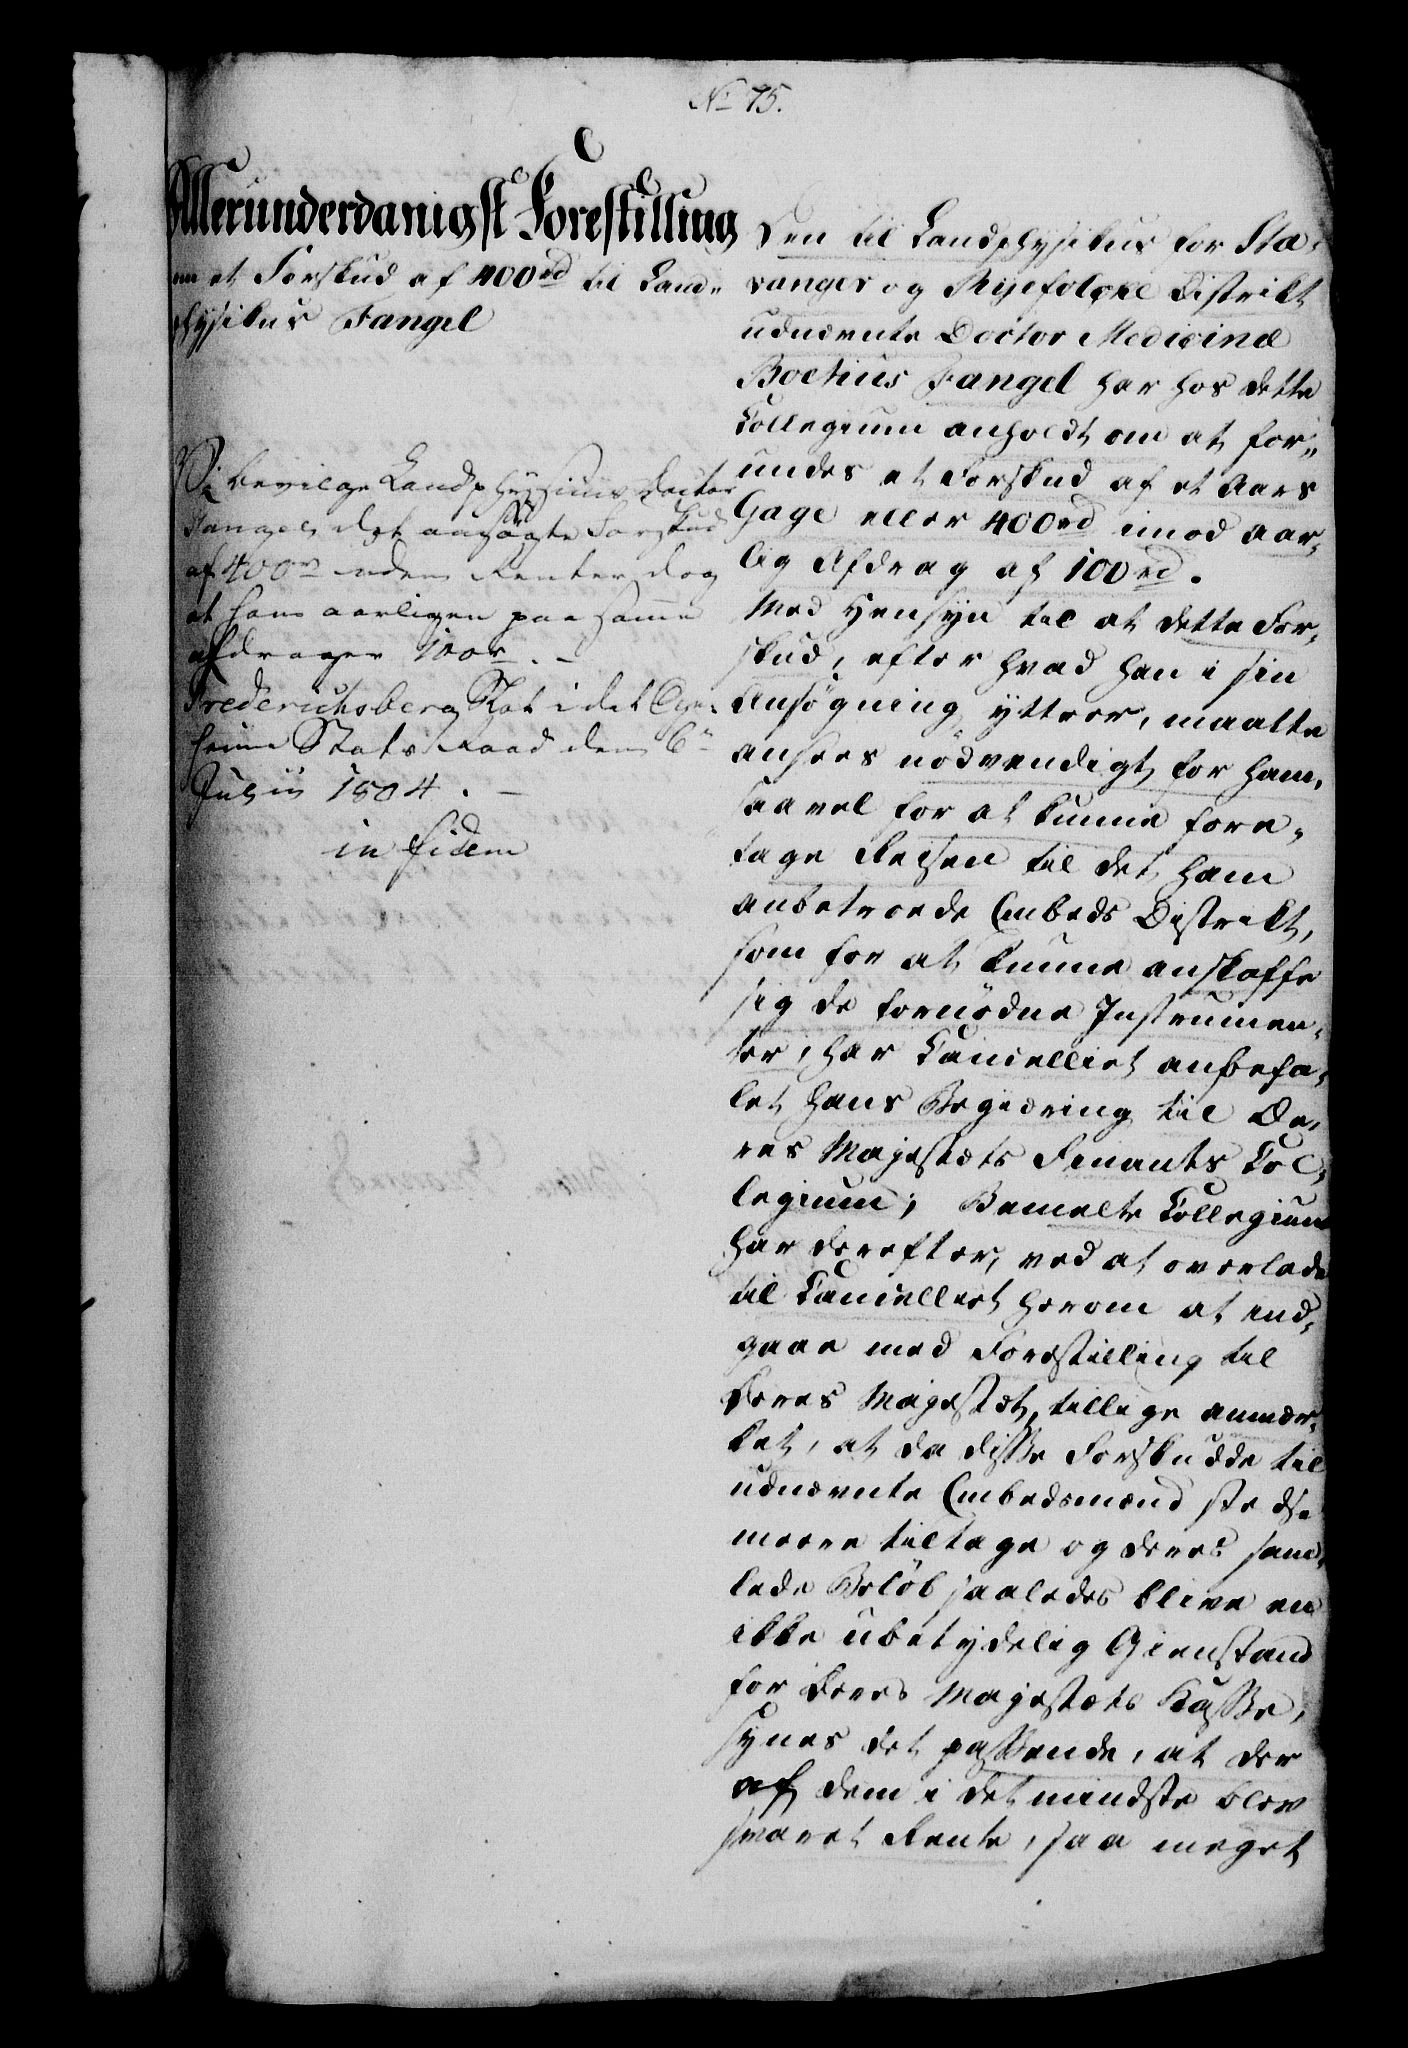 No 75.
Allerunderdanigst Forestilling
om et Forskud af 400rd til Land„
physikus Fangel
Vi bevilge Landphysicus Doctor
Fangel det ansøgte Forskud
af 400rd uden Renter, dog
at han aarligen paa samme
afdrager 100rd. –
Frederichsberg Slot i det Ge„
heime Stats Raad den 6te
Julii 1804. –
in fidem
Den til Landphysikus for Sta„
vanger og Ryefolcke Distrikt
udnævnte Doctor Medicinæ
Boetius Fangel har hos dette
Collegium anholdt om at for„
undes et Forskud af et Aars
Gage eller 400rd imod aar„
lig Afdrag af 100rd.
Med Hensyn til at dette For„
skud, efter hvad han i sin
Ansøgning yttrer, maatte
ansees nødvendigt for ham,
saavel for at kunne fore„
tage Reisen til det ham
anbetroede Embeds Distrikt,
som for at kunne anskaffe
sig de fornødne Instrumen„
ter, har Cancelliet anbefa„
let hans Begiæring til De„
res Majestæts Finants Col„
legium; Bemelte Collegium
har derefter, ved at overlade
til Cancelliet herom at ind„
gaae med Forestilling til
Deres Majestæt, tillige anmær„
ket, at da disse Forskudde til
udnævnte Embedsmænd ste dse
meere tiltage og deres sam„
lede Beløb saaledes blive en
ikke ubetydelig Gienstand
for Deres Majestæts Kasse,
synes det passende, at der
af dem i det mindste blev
svaret Rente, saa meget